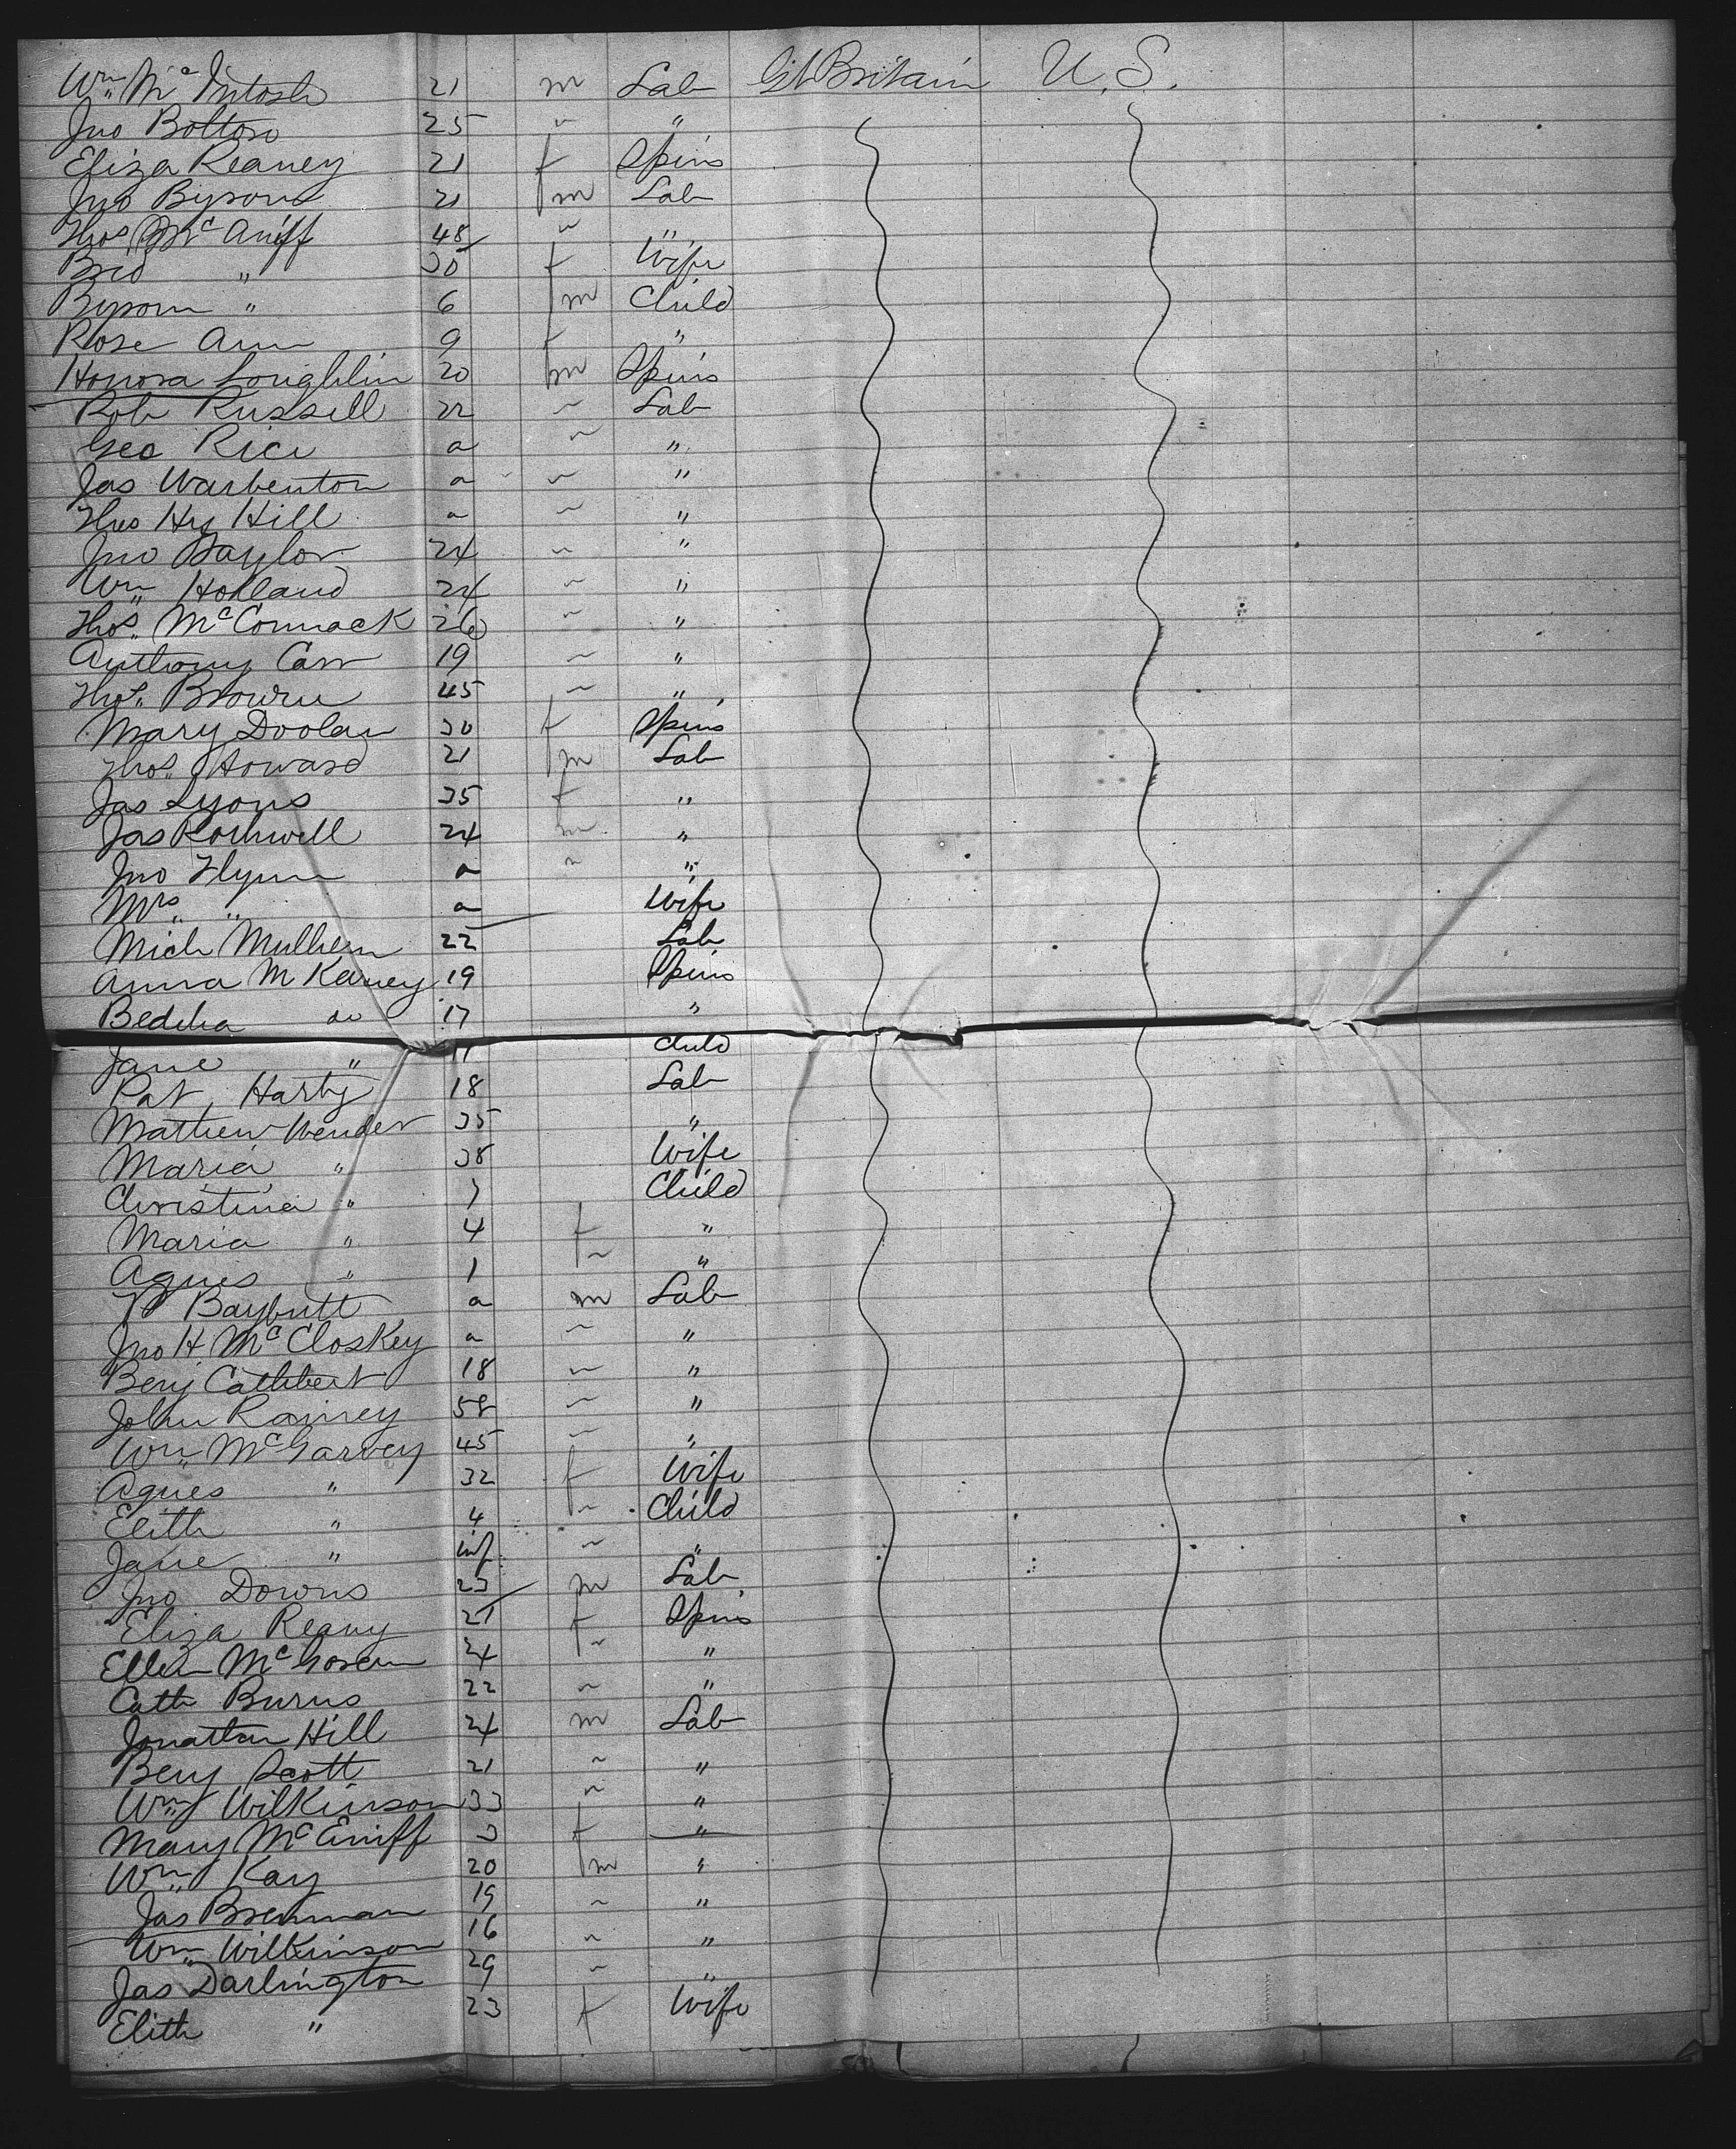 Wm Mc Intosh 21 m Lab Gt Britain U.S.
Jno Bottom 25 " "
Eliza Reaney 21 f Spins
Jno Byrom 21 m Lab
Thos McAniff 48 " "
Brid " 30 f Wife
Byrom " 6 m Child
Rose Ann 9 f "
Honora Loughlin 20 m Spins
Rob Russell 22 " Lab
Geo Rice a " "
Jas Warbenton a " "
Thos Hy Hill a " "
Jno Taylor 24 " "
Wm Holland 24 " "
Thos McCormack 26 " "
Anthony Carr 19 " "
Thos Brown 45 " "
Mary Doolan 30 f Spins
Thos Howard 21 m Lab
Jas Lyons 35 f "
Jas Rothwell 24 m "
Jno Flynn a " "
Mrs " a Wife
Mich Mulhern 22 Lab
Anna M Kaney 19 Spins
Bedelia do 17 "
Jane " 11 Child
Pat Harty 18 Lab
Mathew Wender 35 "
Maria " 38 Wife
Christina " 7 Child
Maria " 4 f "
Agnes " 1 " "
Baybutt a m Lab
Jno H McCloskey a " "
Benj Cathbert 18 " "
John Rainey 58 " "
Wm McGarvey 45 " "
Agnes " 32 f Wife
Elith " 4 " Child
Jane " inf " "
Jno Downs 23 m Lab
Eliza Reany 21 f Spins
Ellen McGovern 24 " "
Cath Burns 22 " "
Jonathan Hill 24 m Lab
Benj Scott 21 " "
Wm Wilkinson 33 " "
Mary McEniff 3 f "
Wm Kay 20 m "
Jas Brennan 19 " "
Wm Wilkinson 16 " "
Jas Darlington 29 " "
Elith " 23 f Wife